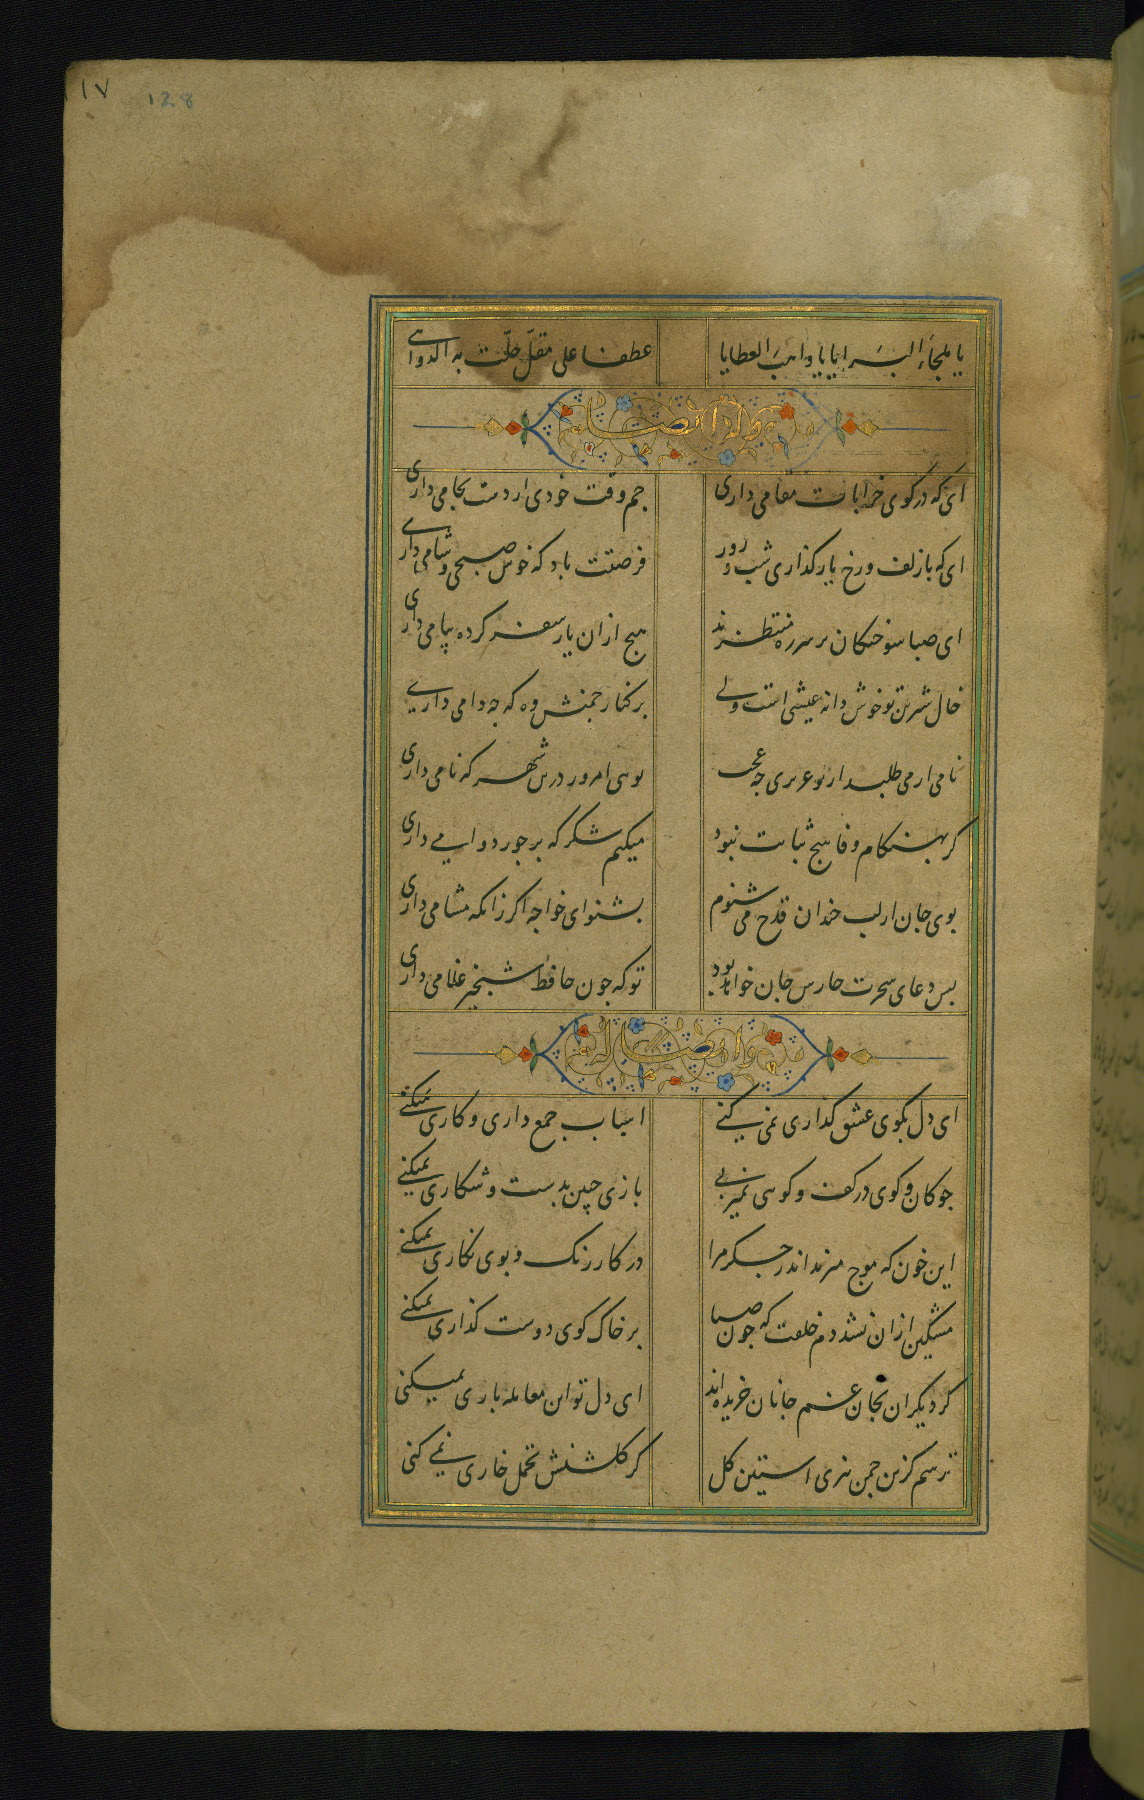 ١٧
128
یا ملجأ البرایا یا واهب العطایا
عطفا علی مقلّ حلّت به الدواهی
وله ایضا
ای که در کوی خرابات مقامی داری
جم وقت خودی ار دست بجامی داری
ای که با زلف و رخ یار کذاری شب و روز
فرصتت باد که خوش صبحی و شامی داری
ای صبا سوختکان بر سر ره منتظرند
هیچ ازان یار سفر کرده پیامی داری
خال شرین تو خوش دانه عیشی است ولی
بر کنار چمنش وه که چه دامی داری
نامی ار می طلبد از تو غریبی چه عجب
تویی امروز درین شهر که نامی داری
کر بهنکام وفا هیچ ثباتت نبود
میکنم شکر که بر جور دوامی داری
بوی جان از لب خندان قدح می شنوم
بشنو ای خواجه اکر زانکه مشامی داری
بس دعای سحرت حارس جان خواهد بود
تو که چون حافظ شبخیز غلامی داری
وله ایضا
ای دل بکوی عشق کذاری نمی کنی
اسباب جمع داری و کاری نمیکنی
چوکان و کوی در کف و کویی نمیزنی
بازی چنین بدست و شکاری نمیکنی
این خون که موج میزند اندر جکر مرا
در کار رنک و بوی نکاری نمیکنی
مشکین ازان نشد دم خلقت که چون صبا
بر خاک کوی دوست کذاری نمیکنی
کر دیکران بجان غم جانان خریده اند
ای دل تو این معامله باری نمیکنی
ترسم کزین چمن نبری آستین کل
کر کلشنش تحمل خاری نمی کنی